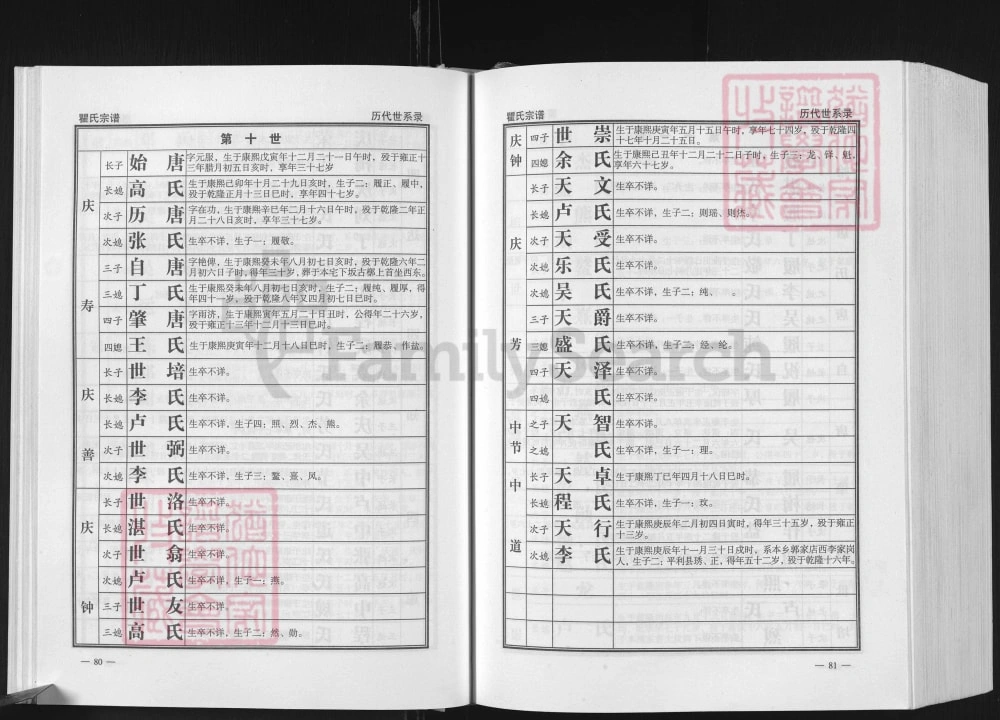 瞿氏宗谱
历代世系录
第十世
庆寿
长子 始唐 字元服，生于康熙戊寅年十二月二十一日午时，殁于雍正十
三年腊月初五日亥时，享年三十七岁
长媳 高氏 生于康熙己卯年十月二十九日亥时，生子二：履正、履中，
殁于乾隆正月十三日巳时，享年四十七岁。
次子 历唐 字在功，生于康熙辛巳年二月十六日午时，殁于乾隆二年正
月二十八日亥时，享年三十七岁。
次媳 张氏 生卒不详，生子一：履敬。
三子 自唐 字艳俾，生于康熙癸未年八月初七日亥时，殁于乾隆六年二
月初六日子时，得年三十岁，葬于本宅下坂古槨上首坐西东。
三媳 丁氏 生于康熙癸未年八月初七日亥时，生子二：履纯、履厚，得
年四十一岁，殁于乾隆八年又四月初七日巳时。
四子 肇唐 字雨济，生于康熙寅年五月二十日丑时，公得年二十六岁，
殁于雍正十三年十二月十三日巳时。
四媳 王氏 生于康熙庚寅年十二月十八日巳时，生子二：履恭、作盐。
庆善
长子 世培 生卒不详。
长媳 李氏 生卒不详。
长媳 卢氏 生卒不详，生子四：照、烈、杰、熊。
次子 世弼 生卒不详。
次媳 李氏 生卒不详，生子三：鳌、熹、凤。
庆钟
长子 世洛 生卒不详。
长媳 湛氏 生卒不详。
次子 世翁 生卒不详。
次媳 卢氏 生卒不详，生子一：燕。
三子 世友 生卒不详。
三媳 高氏 生卒不详，生子二：然、勋。
— 80 —
瞿氏宗谱
历代世系录
庆钟
四子 世崇 生于康熙庚寅年五月十五日午时，享年七十四岁，殁于乾隆四
十七年十月二十五日。
四媳 余氏 生于康熙己丑年十二月二十二日子时，生子三：龙、铎、魁，
享年六十七岁。
庆芳
长子 天文 生卒不详。
长媳 卢氏 生卒不详，生子二：则瑶、则杰。
次子 天受 生卒不详。
次媳 乐氏 生卒不详。
次媳 吴氏 生卒不详，生子二：纯、 。
三子 天爵 生卒不详。
三媳 盛氏 生卒不详，生子二：经、纶。
四子 天泽 生卒不详。
四媳 氏 生卒不详。
中节
之子 天智 生卒不详。
之媳 氏 生卒不详，生子一：理。
中道
长子 天卓 生于康熙丁巳年四月十八日巳时。
长媳 程氏 生卒不详，生子一：玟。
次子 天行 生于康熙庚辰年二月初四日寅时，得年三十五岁，殁于雍正
十三岁。
次媳 李氏 生于康熙庚辰年十一月三十日戌时，系本乡郭家店西李家岗
人，生子二：平利县琇、正，得年五十二岁，殁于乾隆十六年。
— 81 —
FamilySearch